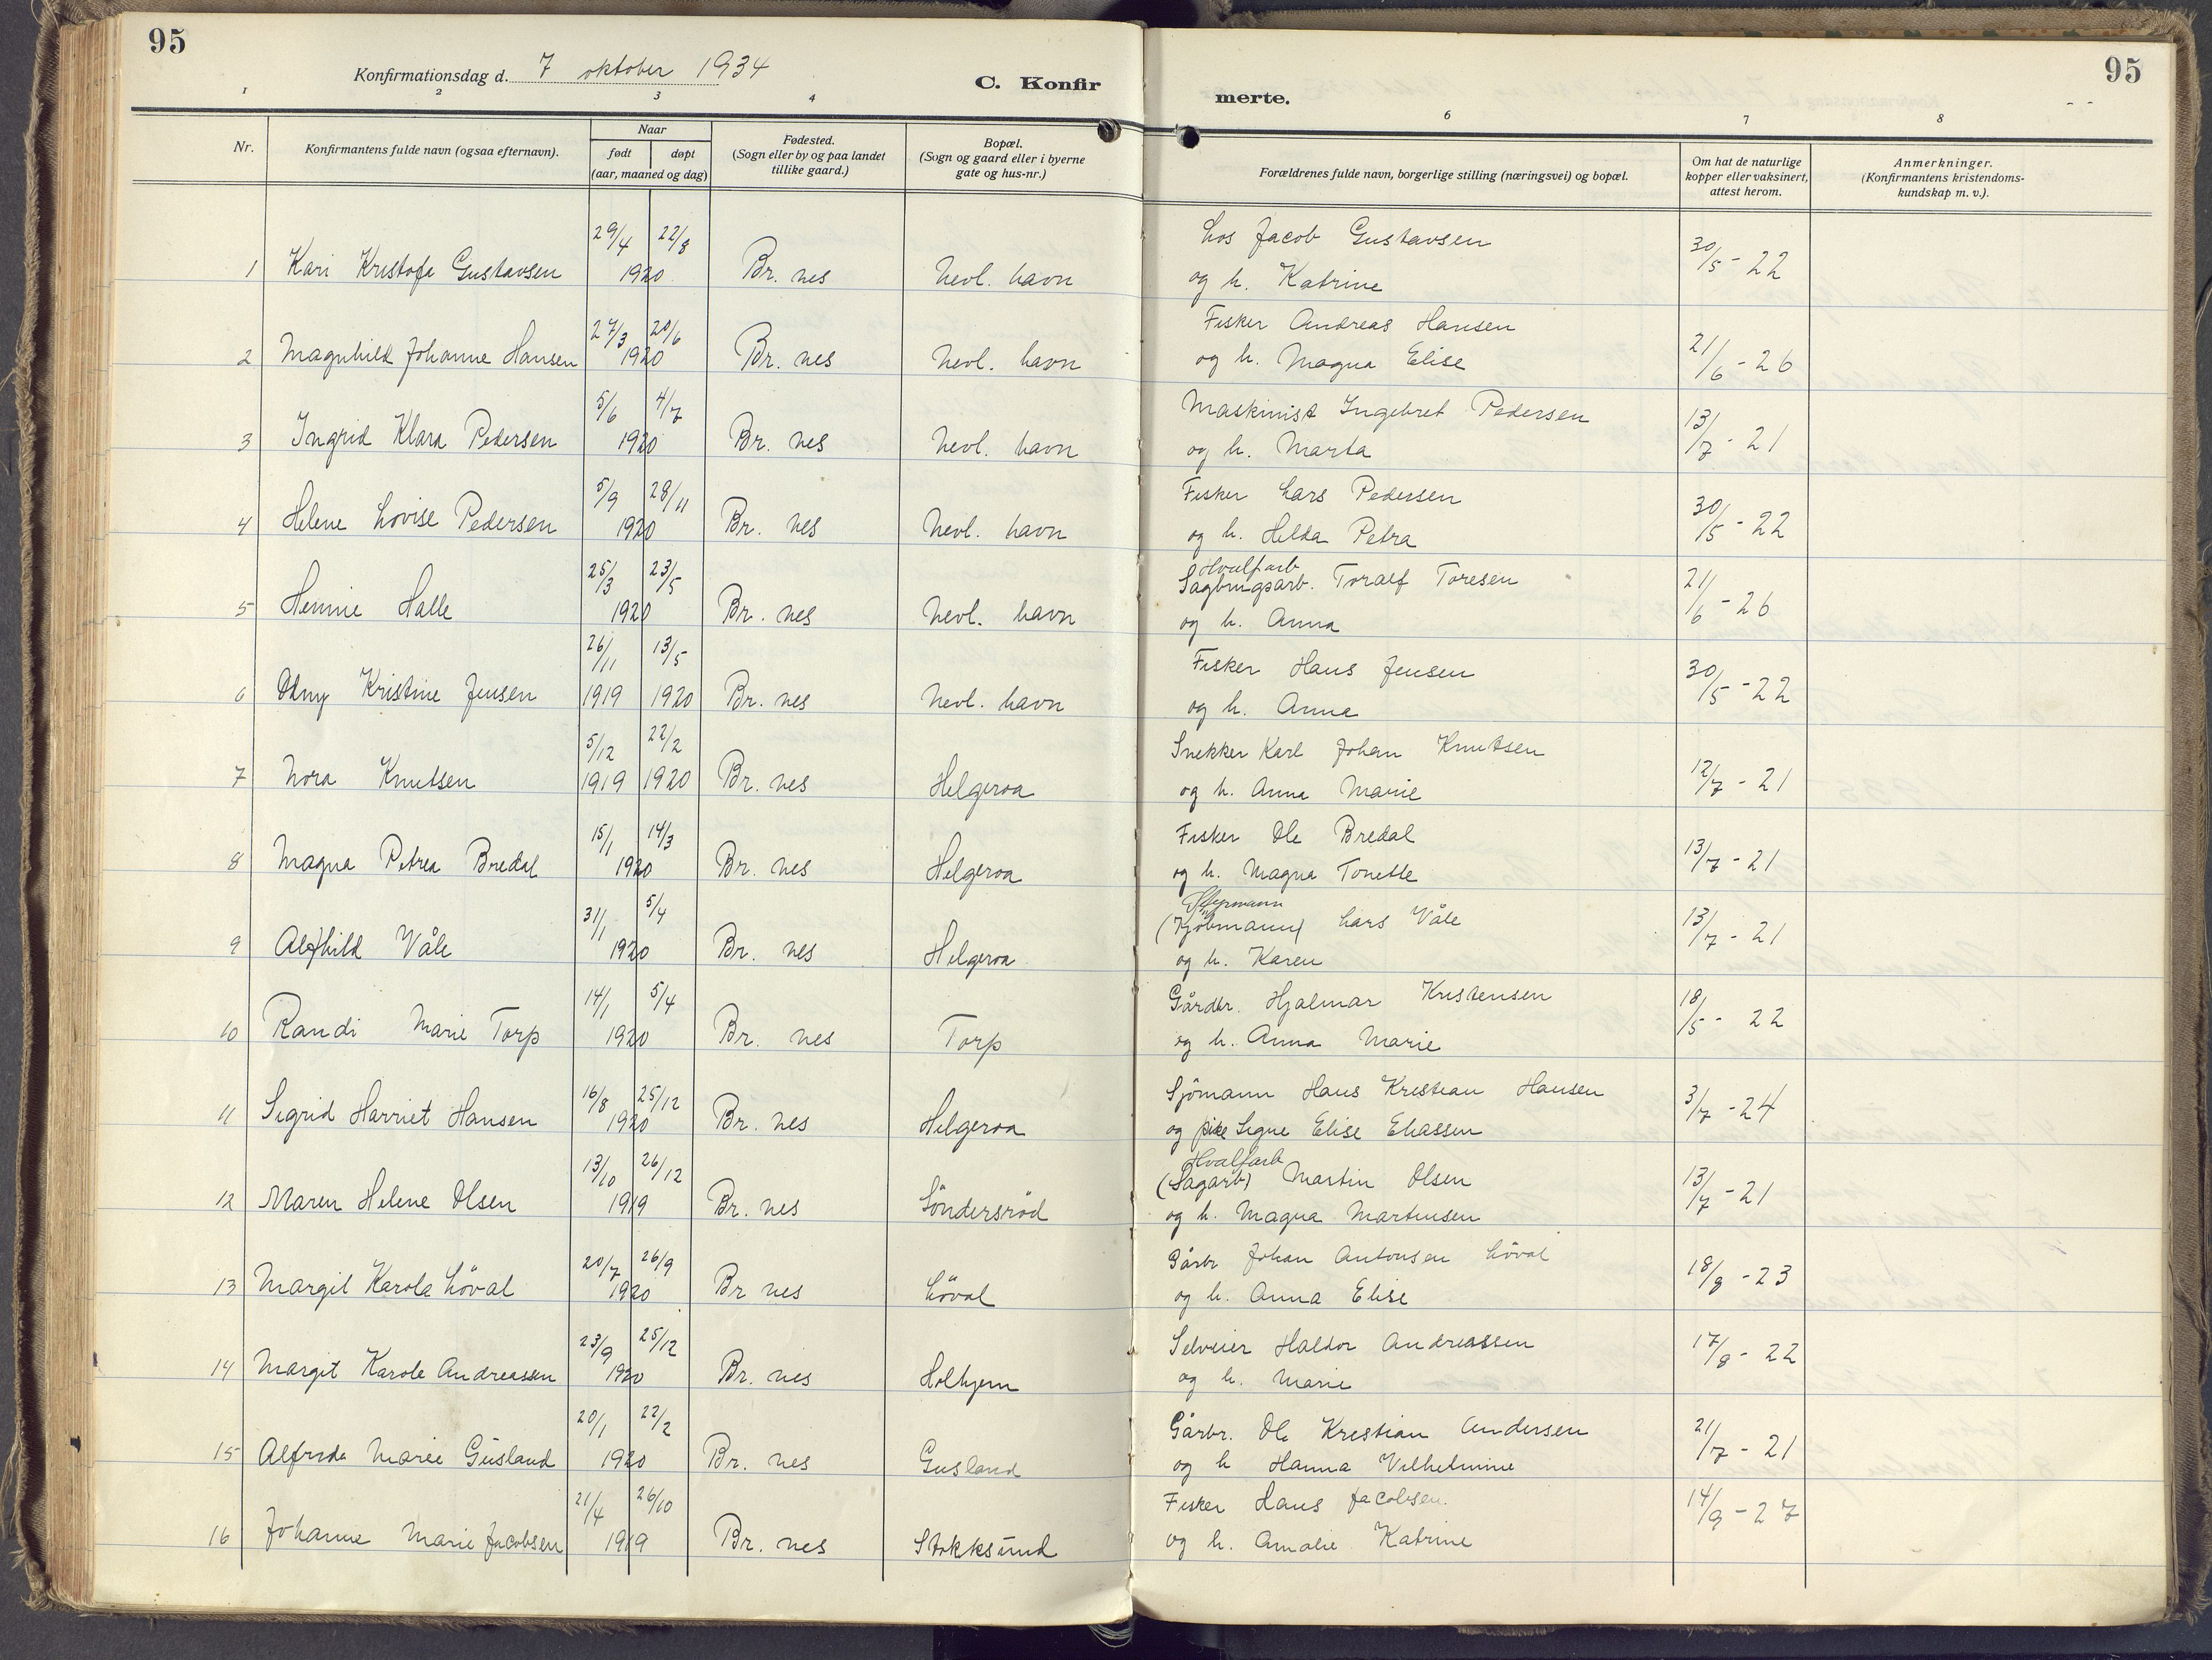 95
95
Konfirmationsdag d. 7 oktober 1934
C. Konfir
merte.
1 2 3 4 6 7 8
Nr.
Konfirmantens fulde navn (ogsaa efternavn).
Naar
født døpt
(aar, maaned og dag)
Fødested.
(Sogn eller by og paa landet
tillike gaard.)
Bopæl.
(Sogn og gaard eller i byerne
gate og hus-nr.)
Forældrenes fulde navn, borgerlige stilling (næringsvei) og bopæl.
Om hat de naturlige
kopper eller vaksinert,
attest herom.
Anmerkninger.
(Konfirmantens kristendoms-
kundskap m. v.).
29/4 22/8 Los Jacob Gustavsen
1 Kari Kristofa Gustavsen 1920 Br. nes Nevl. havn og h. Katrine 30/5 - 22
27/3 20/6 Fisker Andreas Hansen
2 Magnhild Johanne Hansen 1920 Br. nes Nevl. havn og h. Magna Elise 21/6 - 26
5/6 4/7 Maskinist Ingebret Pedersen
3 Ingrid Klara Pedersen 1920 Br. nes Nevl. havn og h. Marta 13/7 - 21
5/9 28/11 Fisker Lars Pedersen
4 Helene Lovise Pedersen 1920 Br. nes Nevl. havn og h. Helda Petra 30/5 - 22
Hvalfarb
25/3 23/5 Sagbrugsarb. Toralf Toresen
5 Hennie Halle 1920 Br. nes Nevl. havn og h. Anna 21/6 - 26
26/11 13/5 Fisker Hans Jensen
6 Kristine Jensen 1919 1920 Br. nes Nevl. havn og h. Anna 30/5 - 22
5/12 22/2 Snekker Karl Johan Knutsen
7 Nora Knutsen 1919 1920 Br. nes Helgeroa og h. Anna Marie 12/7 - 21
15/1 14/3 Fisker Ole Bredal
8 Magna Petrea Bredal 1920 Br. nes Helgeroa og h. Magna Tonette 13/7 - 21
Styrmann
31/1 5/4 (Kjöbmann) Lars Våle
9 Alfhild Våle 1920 Br. nes Helgeroa og h. Karen 13/7 - 21
14/1 5/4 Gårdbr. Hjalmar Kristensen
10 Randi Marie Torp 1920 Br. nes Torp og h. Anna Marie 18/5 - 22
16/8 25/12 Sjömann Hans Kristian Hansen
11 Sigrid Harriet Hansen 1920 Br. nes Helgeroa og pike Signe Elise Eliassen 3/7 - 24
Hvalfarb
13/10 26/12 (Sagarb) Martin Olsen
12 Maren Helene Olsen 1919 Br. nes Söndersröd og h. Magna Martinsen 13/7 - 21
20/7 26/9 Gårbr Johan Antonsen Löval
13 Margit Karola Löval 1920 Br nes Löval og h. Anna Elise 18/8 - 23
23/9 25/12 Selveier Haldor Andreassen
14 Margit Karole Andreassen 1920 Br. nes Holhjem og h. Marie 17/8 - 22
20/1 22/2 Gårbr. Ole Kristian Andersen
15 Alfrida Marie Gusland 1920 Br. nes Gusland og h Hanna Vilhelmine 21/7 - 21
21/4 26/10 Fisker Hans Jacobsen.
16 Johanne Marie Jacobsen 1919 Br. nes Stokksund og h. Amalie Katrine 14/9 - 27